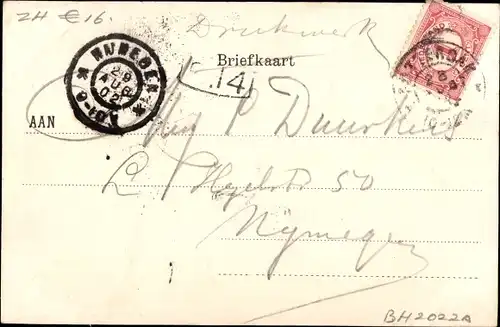 ZH € 16.
Drukwerk
NIJMEGEN
29
AUG
02
Briefkaart
14
AAN
P Duurkens
L. Hezelstr 50
Nijmegen
BH2022A